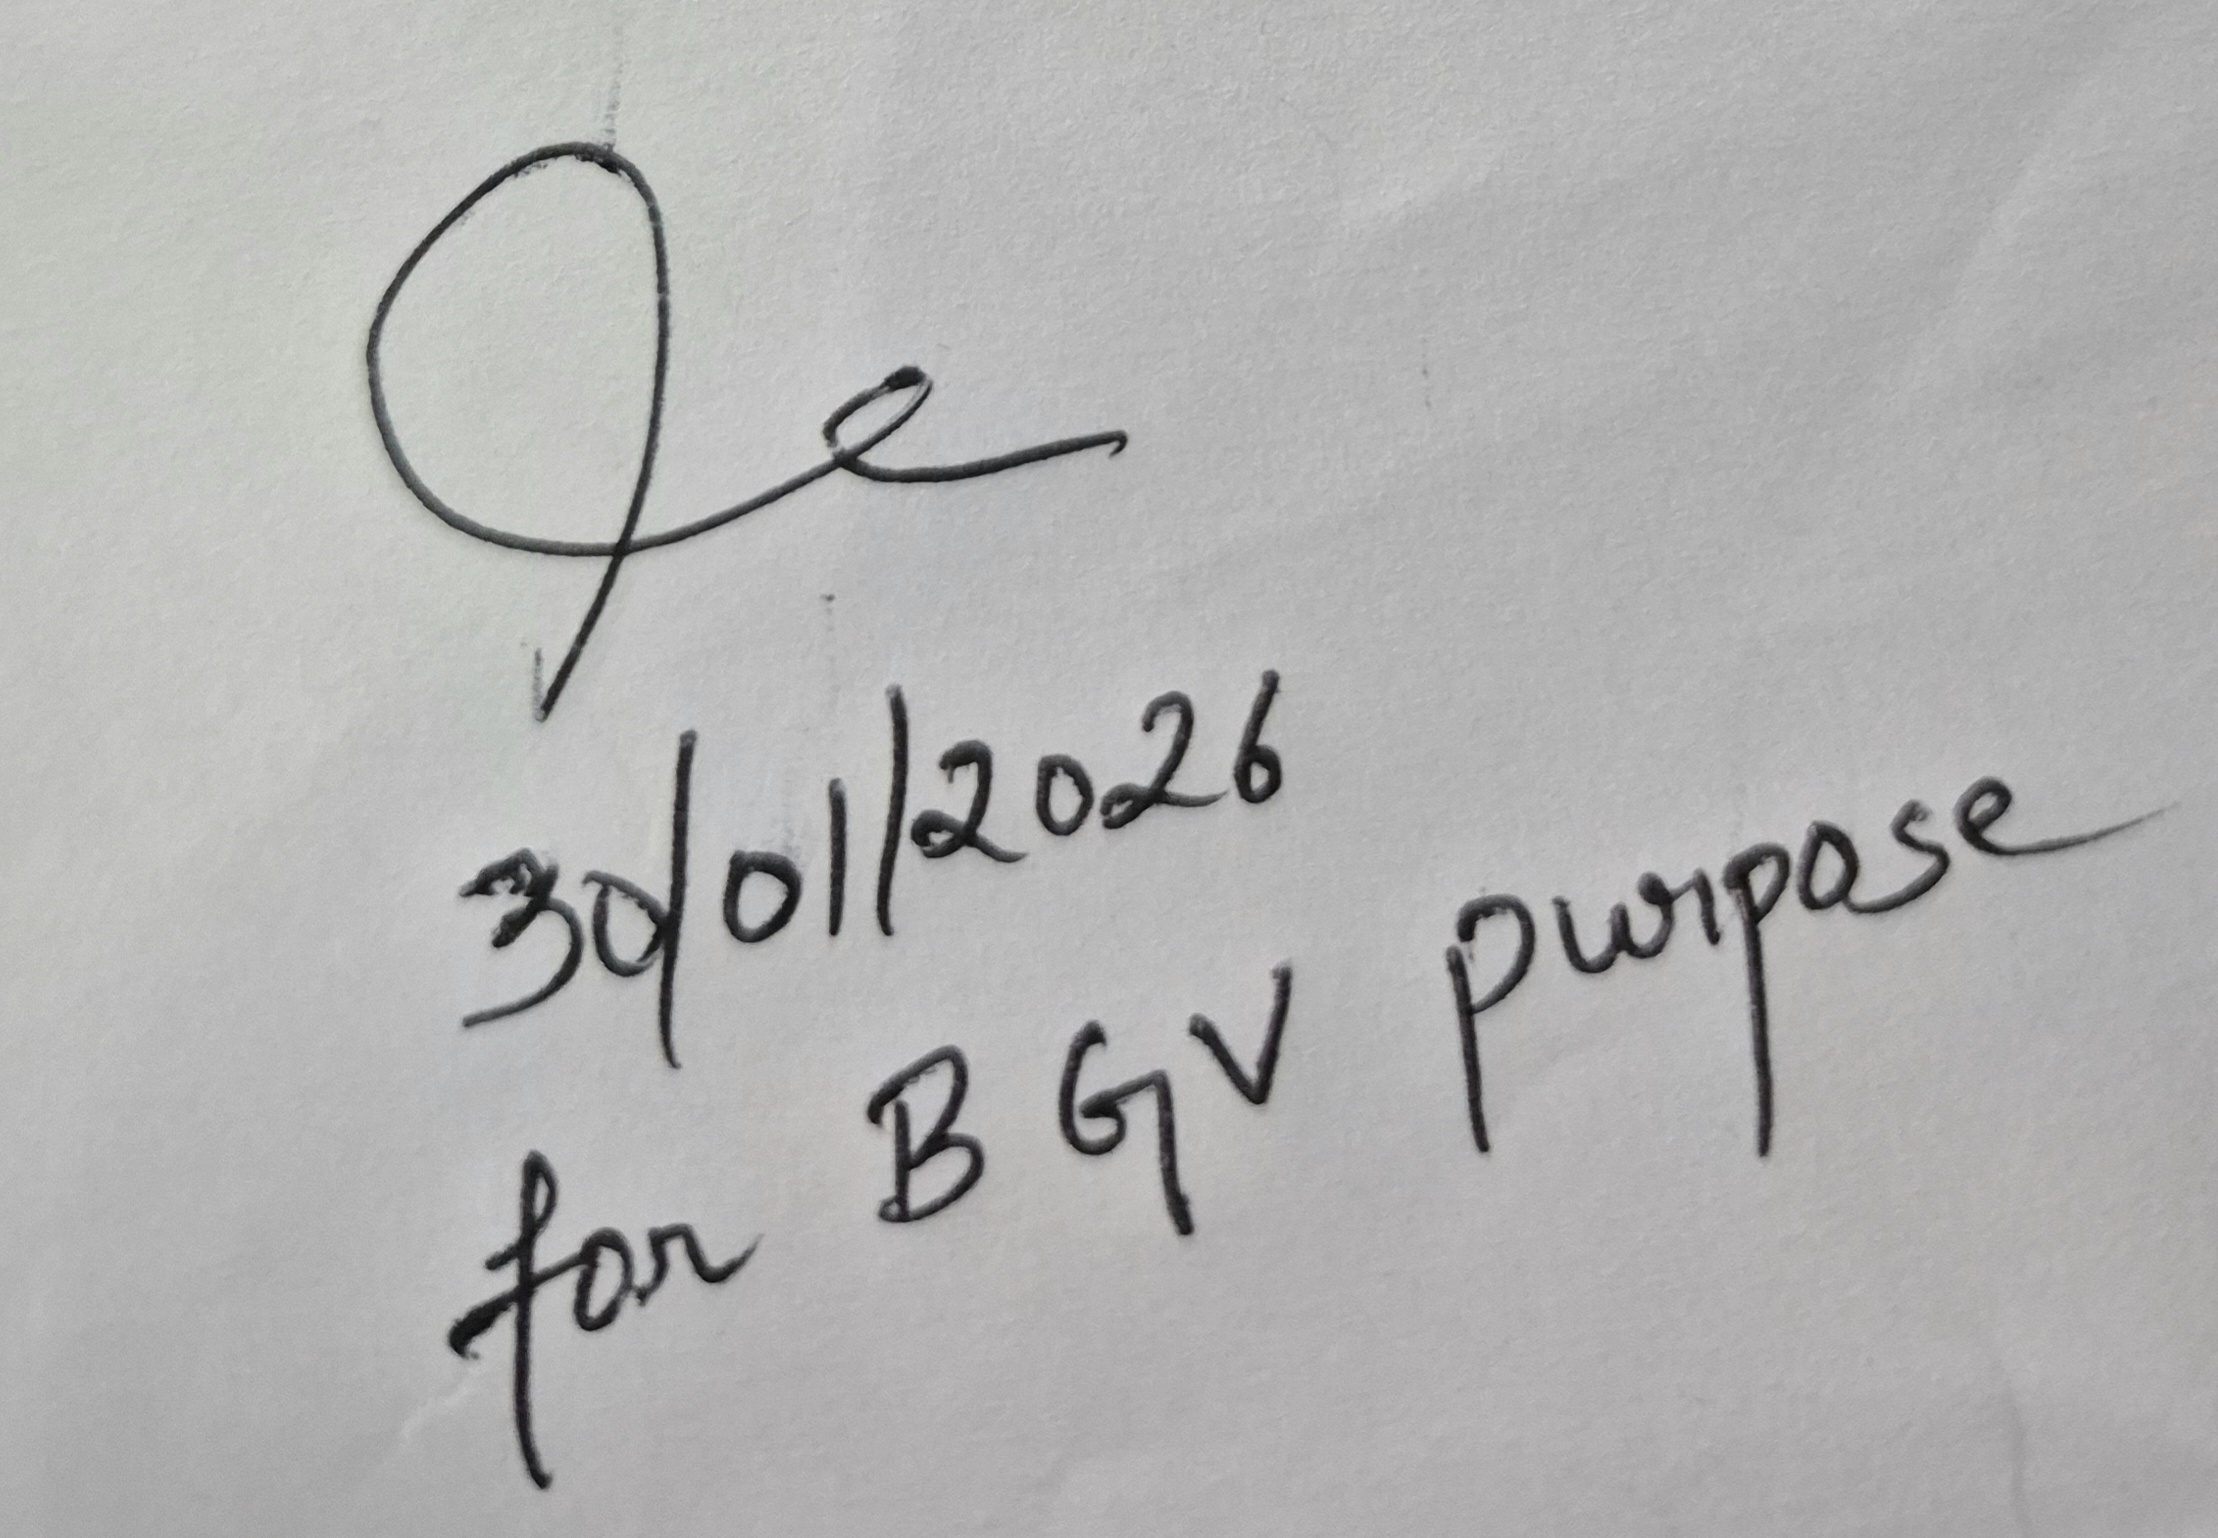 30/01/2026
for BGV purpose